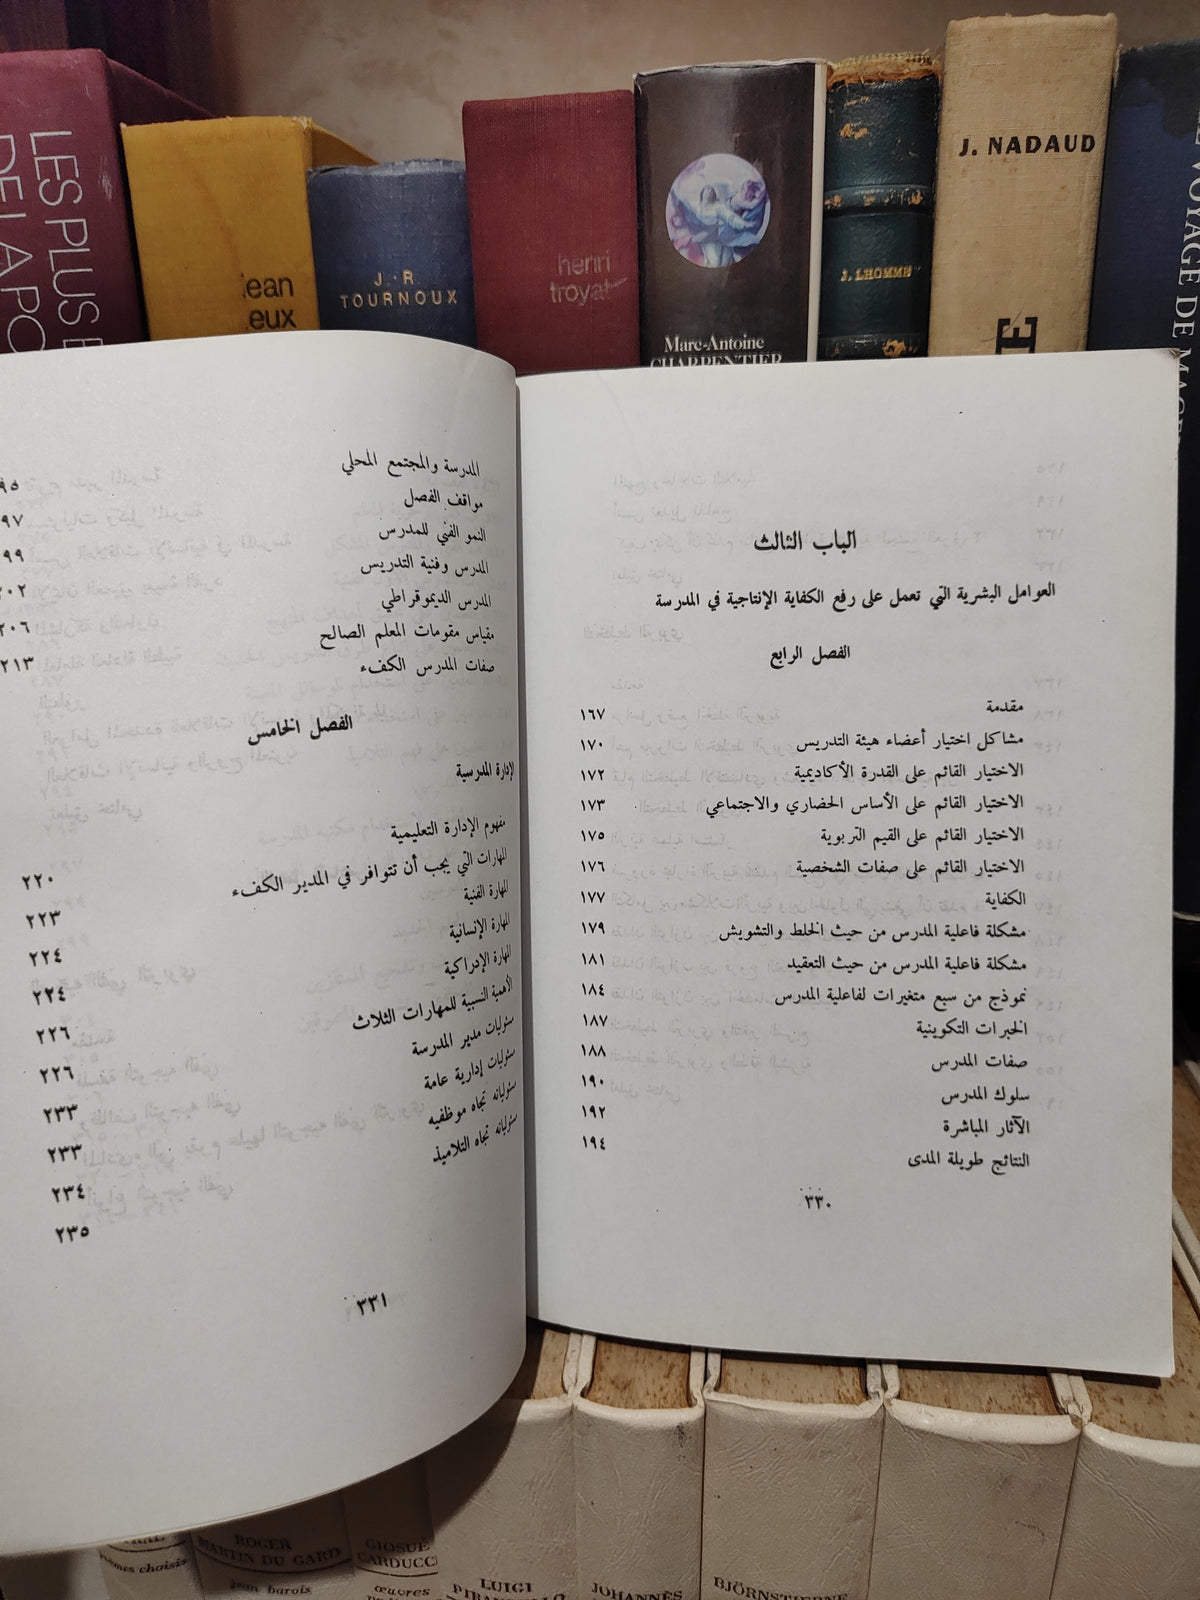 LES PLUS
DE LA PO
ean
eux
J.-R.
TOURNOUX
henri
troyat
Marc-Antoine
CHARPENTIER
J. LHOMME
J. NADAUD
VOYAGE DE
الباب الثالث
العوامل البشرية التي تعمل على رفع الكفاية الإنتاجية في المدرسة
الفصل الرابع
مقدمة ١٦٧
مشاكل اختيار أعضاء هيئة التدريس ١٧٠
الاختيار القائم على القدرة الأكاديمية ١٧٢
الاختيار القائم على الأساس الحضاري والاجتماعي ١٧٣
الاختيار القائم على القيم التربوية ١٧٥
الاختيار القائم على صفات الشخصية ١٧٦
الكفاية ١٧٧
مشكلة فاعلية المدرس من حيث الخلط والتشويش ١٧٩
مشكلة فاعلية المدرس من حيث التعقيد ١٨١
نموذج من سبع متغيرات لفاعلية المدرس ١٨٤
الخبرات التكوينية ١٨٧
صفات المدرس ١٨٨
سلوك المدرس ١٩٠
الآثار المباشرة ١٩٢
النتائج طويلة المدى ١٩٤
٣٣٠
المدرسة والمجتمع المحلي ٩٥
مواقف الفصل ٩٧
النمو الفني للمدرس ٩٩
المدرس وفنية التدريس ٢٠٢
المدرس الديموقراطي ٢٠٦
مقياس مقومات المعلم الصالح ٢١٣
صفات المدرس الكفء
الفصل الخامس
الإدارة المدرسية
مفهوم الإدارة التعليمية ٢٢٠
المهارات التي يجب أن تتوافر في المدير الكفء ٢٢٣
المهارة الفنية ٢٢٤
المهارة الإنسانية ٢٢٤
المهارة الإدراكية ٢٢٦
الأهمية النسبية للمهارات الثلاث ٢٢٦
مسئوليات مدير المدرسة ٢٣٣
مسئوليات إدارية عامة ٢٣٣
مسئولياته تجاه موظفيه ٢٣٤
مسئولياته تجاه التلاميذ ٢٣٥
٣٣١
choisis
ROGER
MARTIN DU GARD
jean barois
GIOSUÈ
CARDUCCI
œuvres
LUIGI
PIRANDELLO
JOHANNÈS
BJÖRNSTJERNE